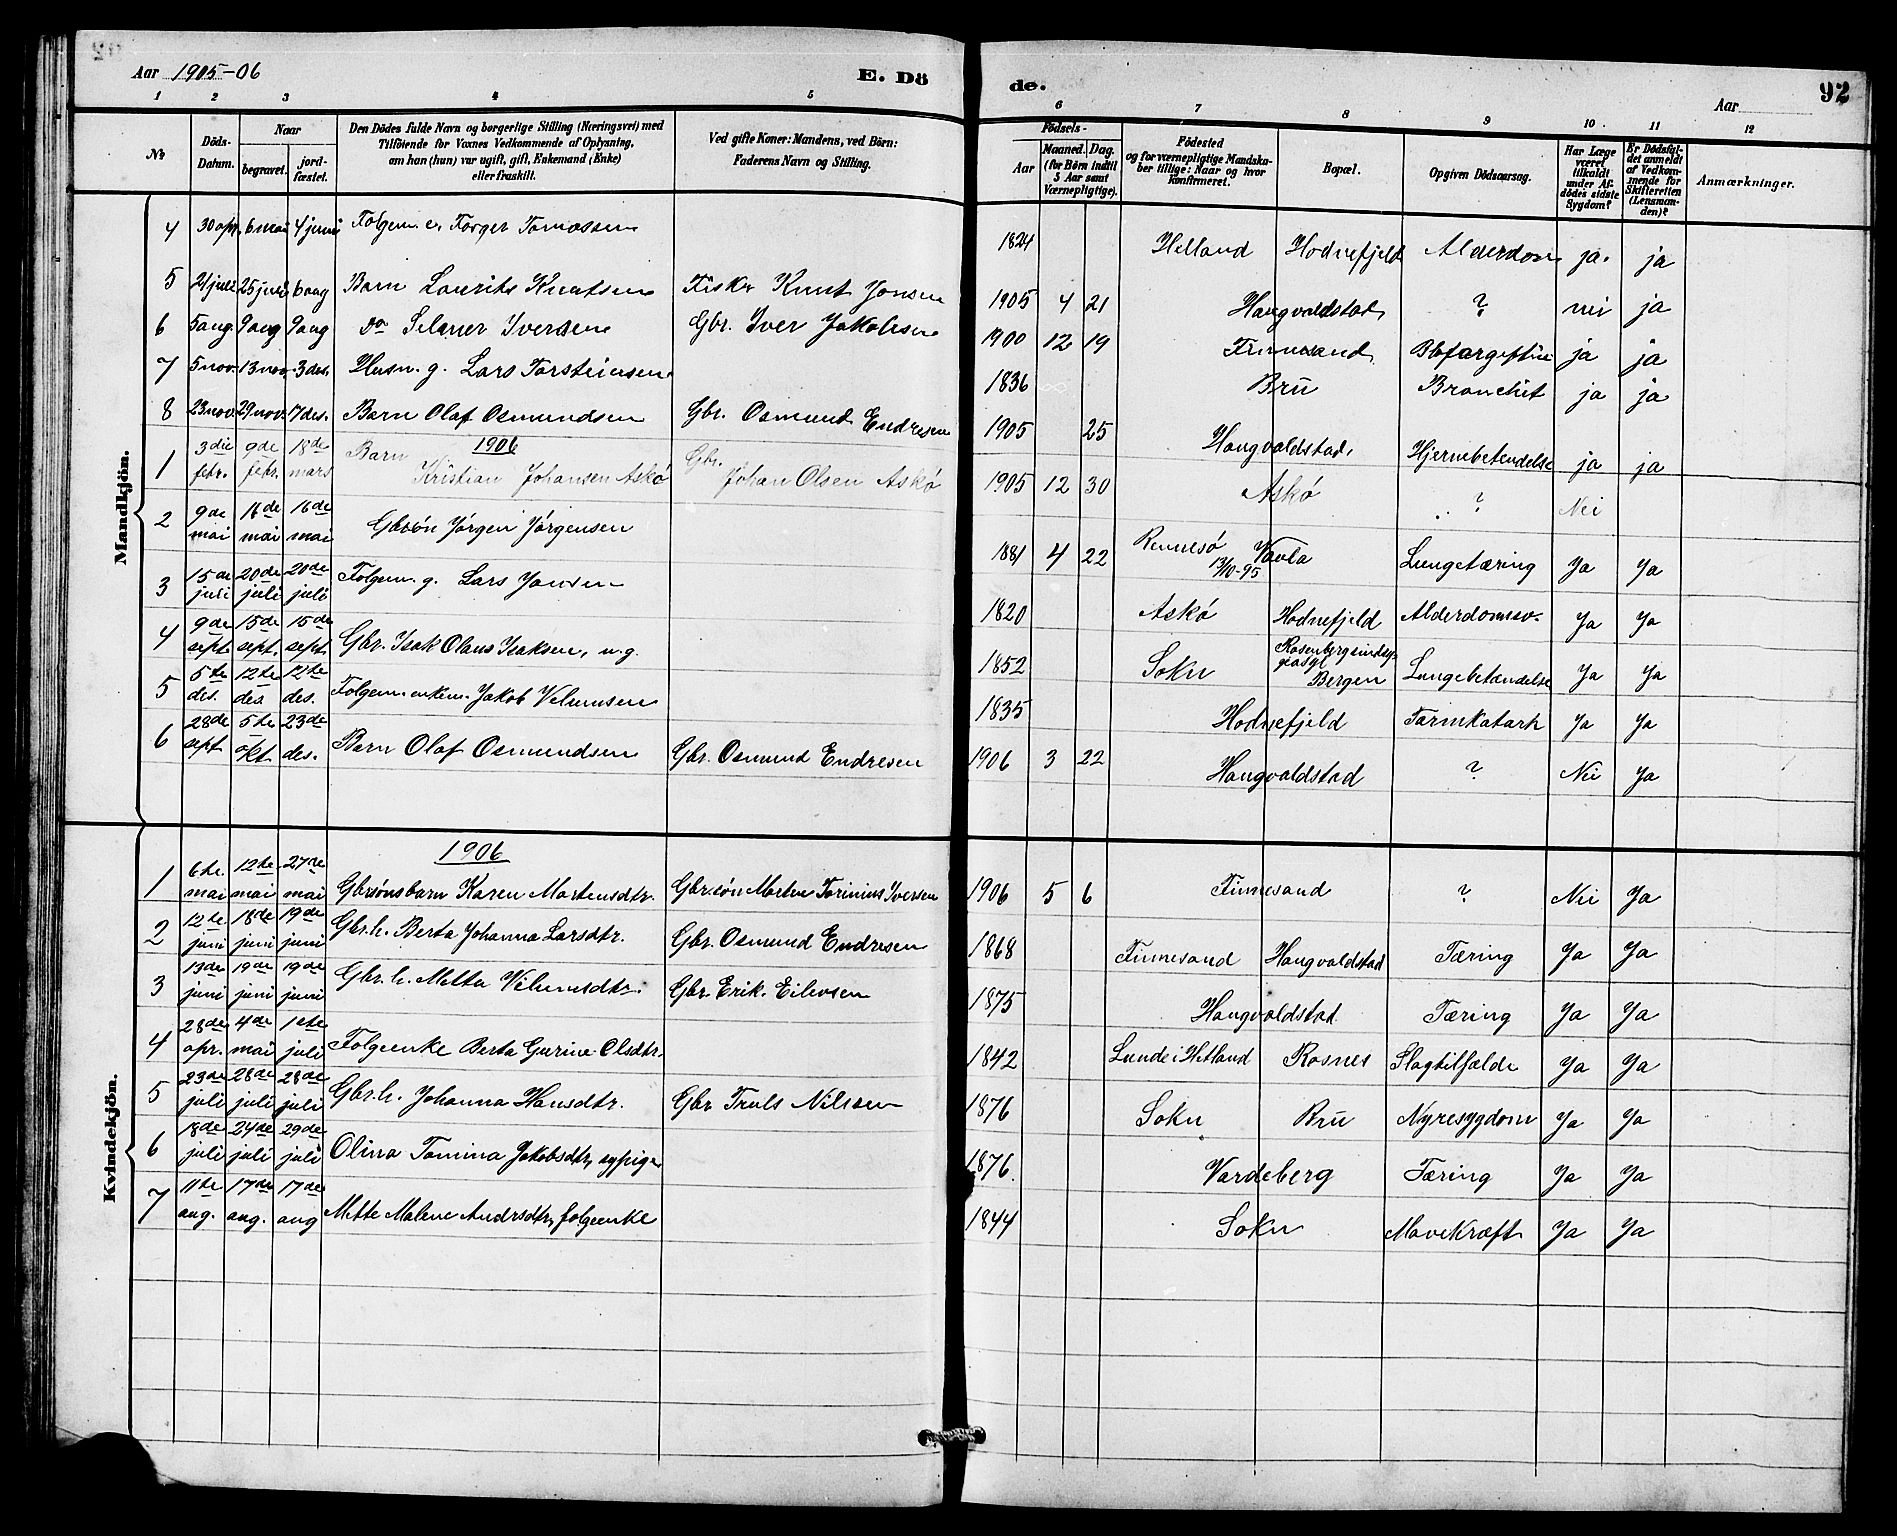 Aar 1905-06
E. Dö
de.
Aar
92
1 2 3 4 5 6 7 8 9 10 11 12
No
Döds-Datum.
Naar
begravet.
jord-fæstet.
Den Dödes fulde Navn og borgerlige Stilling (Næringsvei) med
Tilföiende for Voxnes Vedkommende af Oplysning,
om han (hun) var ugift, gift, Enkemand (Enke)
eller fraskilt.
Ved gifte Koner: Mandens, ved Börn:
Faderens Navn og Stilling.
Födsels-
Aar
Maaned. Dag.
(for Börn indtil
5 Aar samt
Værnepligtige).
Födested
og for værnepligtige Mandska-
ber tillige: Naar og hvor
konfirmeret.
Bopæl.
Opgiven Dödsaarsag.
Har Læge
været
tilkaldt
under Af-
dödes sidste
Sygdom?
Er Dödsfal-
det anmeldt
af Vedkom-
mende for
Skifteretten
(Lensman-
den)?
Anmærkninger.
Mandkjön.
4 30 apr. 6 mai 4 juni Folgem. e. Torger Tomassen 1824 Helland Hodnefjeld Alderdom ja. ja
5 21 juli 25 juli 6 aug Barn Laurits Knutsen Fisker Knut Jonsen 1905 4 21 Haugvaldstad ? nei ja
6 5 aug. 9 aug 9 aug do Selmer Iversen Gbr. Iver Jakobsen 1900 12 19 Finnesand Blodforgiftin ja ja
7 5 nov. 13 nov. 3 des. Husm. g. Lars Torsteinsen 1836 Bru Bronchit ja ja
8 23 nov. 29 nov. 17 des. Barn Olaf Osmundsen Gbr. Osmund Endresen 1905 25 Haugvaldstad, Hjernebetendelse ja ja
1906
1 3die febr. 9de febr. 18de mars Barn Kristian Johansen Askö Gbr. Johan Olsen Askö 1905 12 30 Askö ? Nei
2 9de mai 16de mai 16de mai Gbrsön Jörgen Jörgensen 1881 4 22 Rennesö 13/10-95 Vaula Lungetæring Ja Ja
3 15de juli 20de juli 20de juli Folgem. g. Lars Jansen 1820 Askö Hodnefjeld Alderdomssv. Ja Ja
4 9de sept. 15de sept. 15de sept. Gbr. Isak Olaus Isaksen, u.g. 1852 Sokn Bergen Lungebetændelse Ja Ja
5 5te des. 12te des. 12te des. Folgem. enkem. Jakob Velumsen 1835 Hodnefjeld Tarmkatarh Ja Ja
6 28de sept 5te okt 23de des. Barn Olaf Osmundsen Gbr. Osmund Endresen 1906 3 22 Haugvaldstad ? Nei Ja
Kvindekjön.
1906
1 6te mai 12te mai 27de mai Gbrsönsbarn Karen Martensdtr. Gbr.sön Morten Torinius Iversen 1906 5 6 Finnesand ? Nei Ja
2 12te juni 18de juni 19de juni Gbr.h. Berta Johanna Larsdtr. Gbr. Osmund Endresen 1868 Finnesand Haugvaldstad Tæring Ja Ja
3 13de juni 19de juni 19de juni Gbr.h. Metta Velumsdtr. Gbr. Erik Eilevsen 1875 Haugvaldstad Tæring Ja Ja
4 28de apr. 4de mai 1ste juli Folgeenke Berta Gurine Olsdtr. 1842 Lunde i Hetland Rosnes Slagtilfælde Ja Ja
5 23de juli 28de juli 28de juli Gbr.h. Johanna Hansdtr. Gbr Truls Nilsen 1876 Sokn Bru Nyresygdom Ja Ja
6 18de juli 24de juli 29de juli Olina Tomina Jakobsdtr, sypige 1876 Vardeberg Tæring Ja Ja
7 11te aug. 17de aug. 17de aug Mette Malene Andrsdtr, folgeenke 1844 Sokn Mavekræft Ja Ja